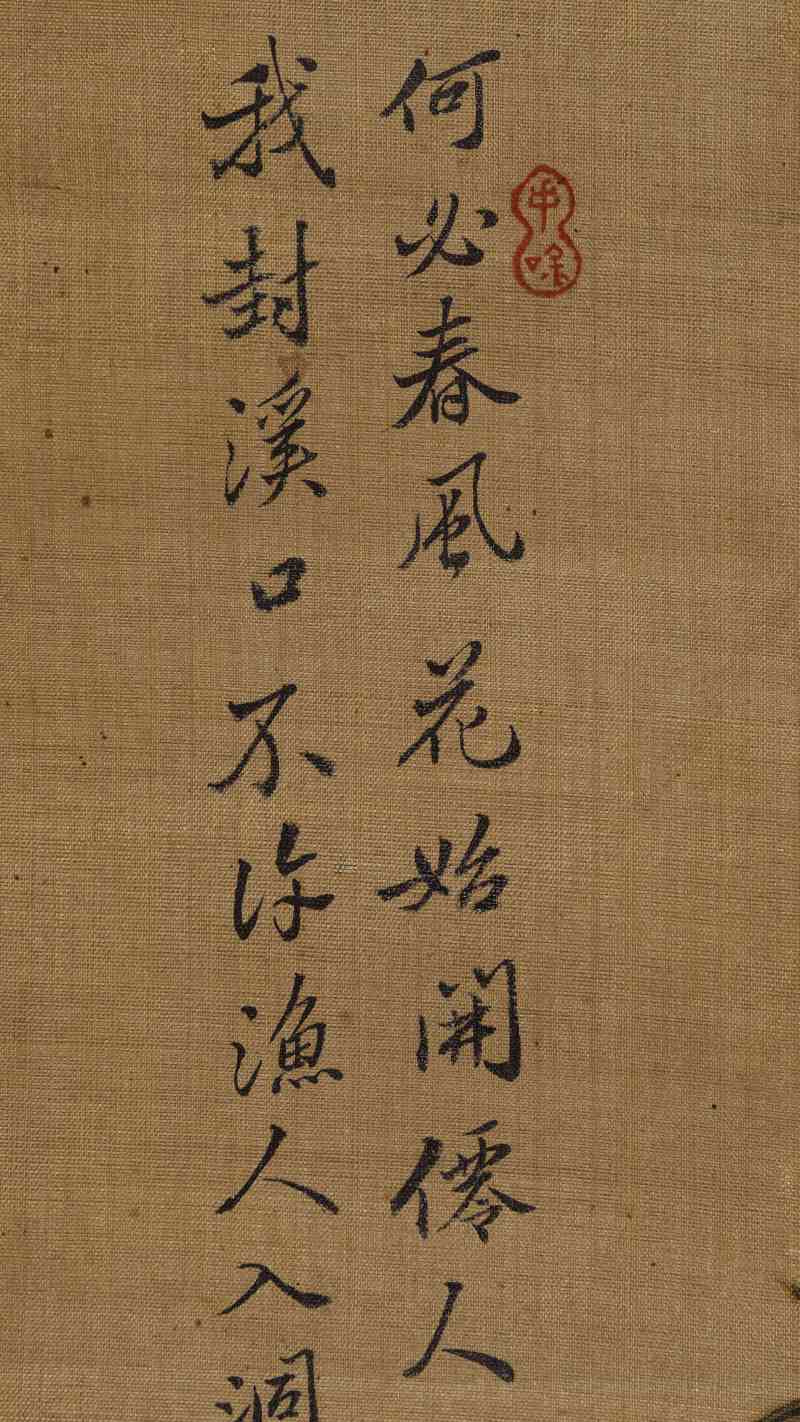 何必春風花始開僊人
我封溪口不许漁人入洞